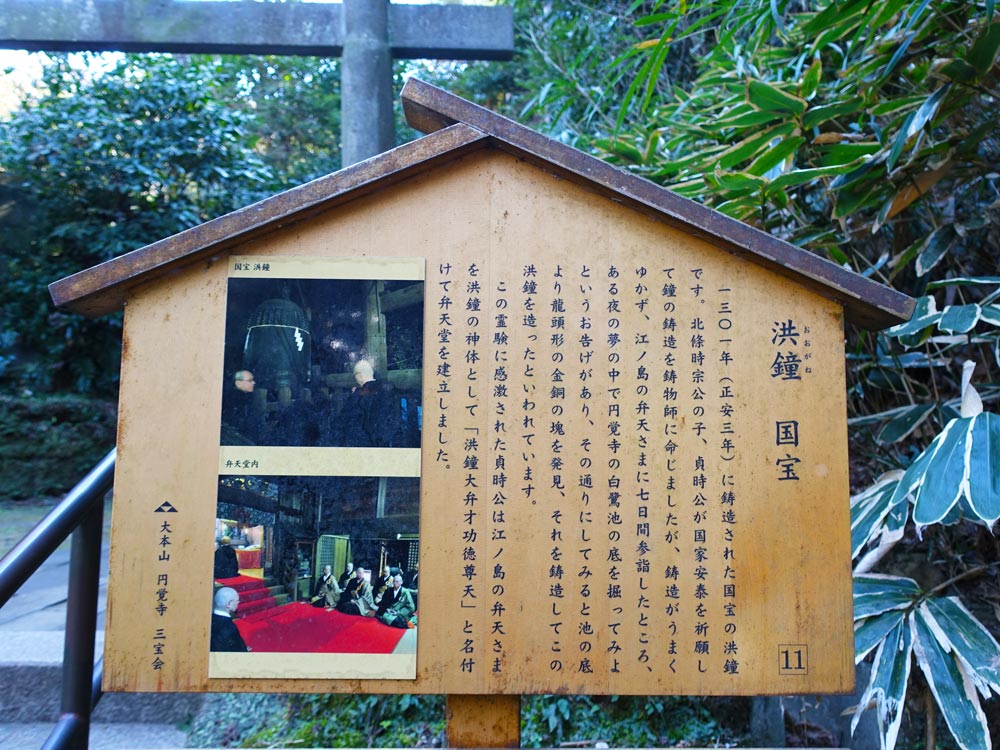 洪鐘 国宝
おおがね
一三〇一年(正安三年)に鋳造された国宝の洪鐘
です。北條時宗公の子、貞時公が国家安泰を祈願し
て鐘の鋳造を鋳物師に命じましたが、鋳造がうまく
ゆかず、江ノ島の弁天さまに七日間参詣したところ、
ある夜の夢の中で円覚寺の白鷺池の底を掘ってみよ
というお告げがあり、その通りにしてみると池の底
より龍頭形の金銅の塊を発見、それを鋳造してこの
洪鐘を造ったといわれています。
この霊験に感激された貞時公は江ノ島の弁天さま
を洪鐘の神体として「洪鐘大弁才功徳尊天」と名付
けて弁天堂を建立しました。
国宝 洪鐘
弁天堂内
大本山 円覚寺 三宝会
11